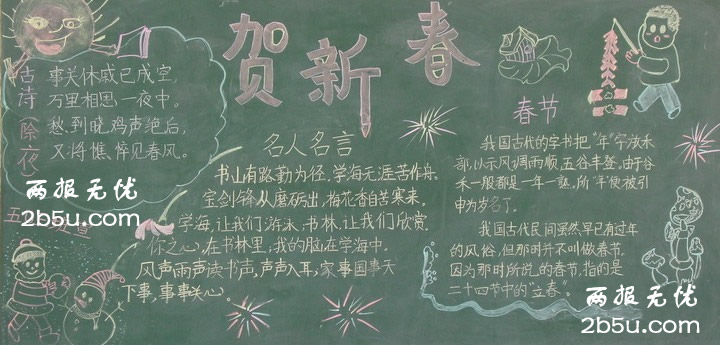 贺新春
古诗（除夜）
事关休戚已成空，
万里相思一夜中。
愁到晓鸡声绝后，
又将憔悴见春风。
名人名言
书山有路勤为径，学海无涯苦作舟。
宝剑锋从磨砺出，梅花香自苦寒来。
学海，让我们游泳，书林，让我们欣赏。
你之心，在书林里，我的脑在学海中。
风声雨声读书声，声声入耳，家事国事天
下事，事事关心。
春节
我国古代的字书把“年”字放禾
部，以示风调雨顺，五谷丰登。由于谷
禾一般都是一年一熟。所“年”便被引
申为岁名了。
我国古代民间虽然早已有过年
的风俗，但那时并不叫做春节。
因为那时所说的春节，指的是
二十四节中的“立春”。
两报无忧
2b5u.com
两报无忧
2b5u.com